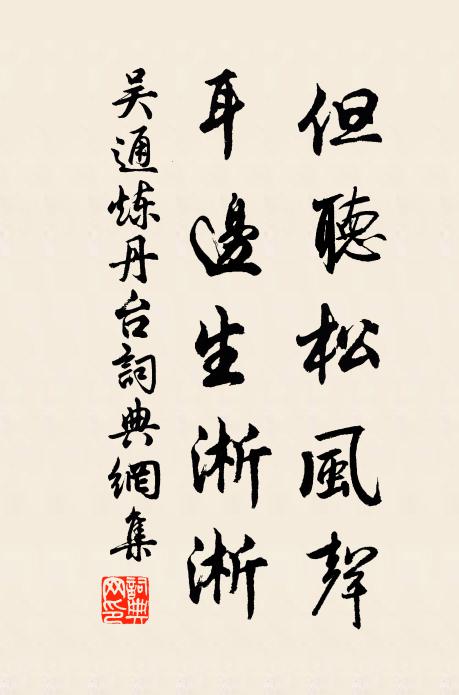 但聽松風聲
耳邊生淅淅
吴通炼丹台詞典網集
詞典網印